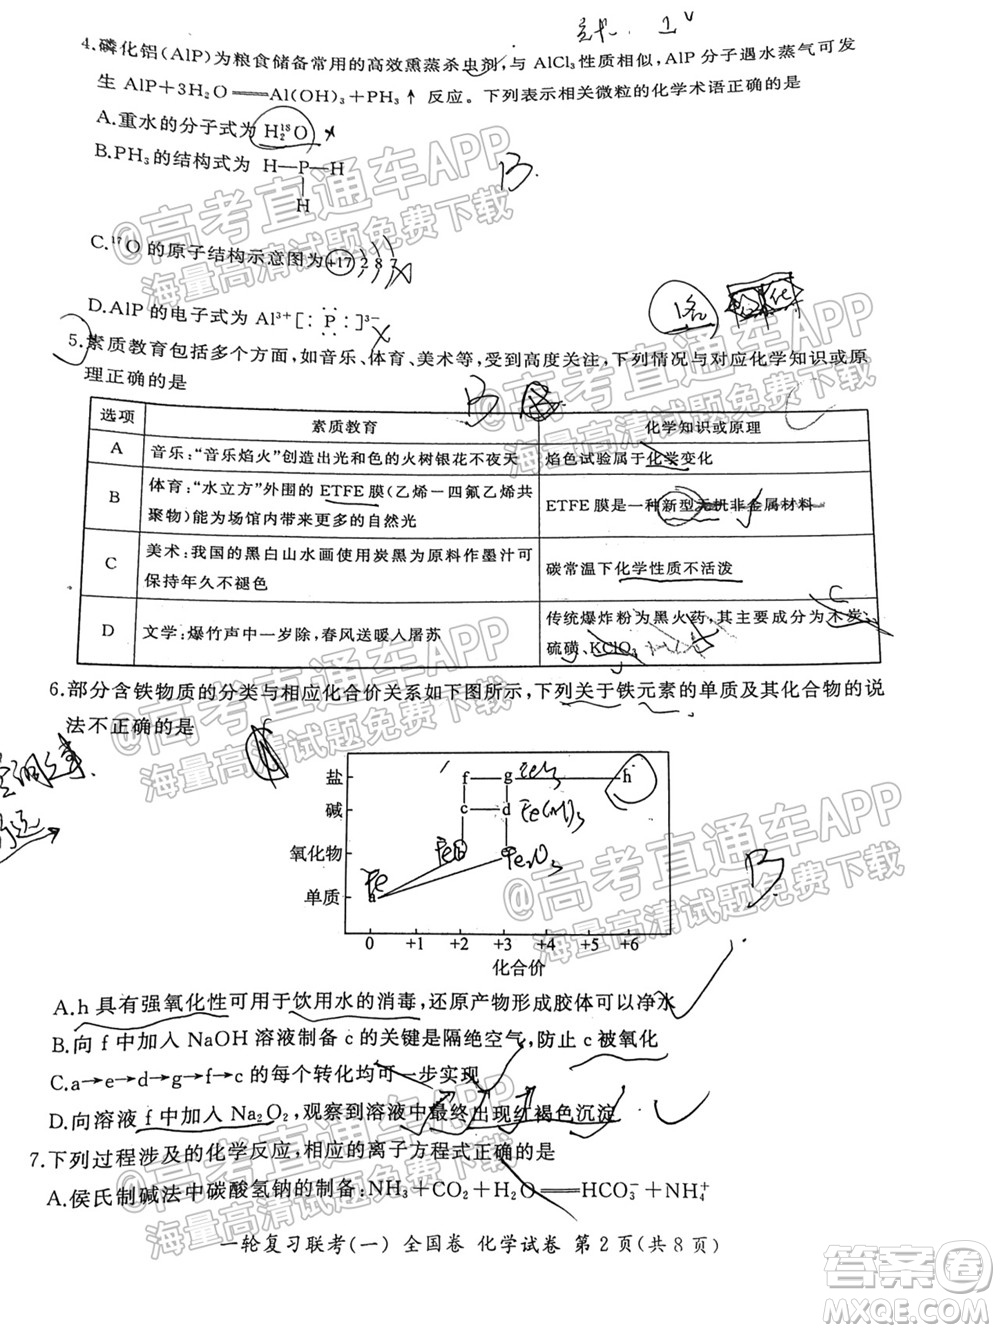 4.磷化铝(AlP)为粮食储备常用的高效熏蒸杀虫剂,与 AlCl₃ 性质相似,AlP 分子遇水蒸气可发
生 AlP+3H₂O══Al(OH)₃+PH₃↑ 反应。下列表示相关微粒的化学术语正确的是
A.重水的分子式为 H₂¹⁸O
B.PH₃ 的结构式为 H—P—H
H
B.
C.¹⁷O 的原子结构示意图为 +17 2 8 7
D.AlP 的电子式为 Al³⁺[:P:]³⁻
5.素质教育包括多个方面,如音乐、体育、美术等,受到高度关注,下列情况与对应化学知识或原
理正确的是
选项 素质教育 化学知识或原理
A 音乐:“音乐焰火”创造出光和色的火树银花不夜天 焰色试验属于化学变化
B 体育:“水立方”外围的 ETFE 膜(乙烯一四氟乙烯共
聚物)能为场馆内带来更多的自然光 ETFE 膜是一种新型无机非金属材料
C 美术:我国的黑白山水画使用炭黑为原料作墨汁可
保持年久不褪色 碳常温下化学性质不活泼
D 文学:爆竹声中一岁除,春风送暖人屠苏 传统爆炸粉为黑火药,其主要成分为木炭、
硫磺、KClO₃
6.部分含铁物质的分类与相应化合价关系如下图所示,下列关于铁元素的单质及其化合物的说
法不正确的是
盐 f g h
碱 c d Fe(OH)₃
氧化物 FeO Fe₂O₃
单质 Fe
0 +1 +2 +3 +4 +5 +6
化合价
B
A.h 具有强氧化性可用于饮用水的消毒,还原产物形成胶体可以净水
B.向 f 中加入 NaOH 溶液制备 c 的关键是隔绝空气,防止 c 被氧化
C.a→e→d→g→f→c 的每个转化均可一步实现
D.向溶液 f 中加入 Na₂O₂,观察到溶液中最终出现红褐色沉淀
7.下列过程涉及的化学反应,相应的离子方程式正确的是
A.侯氏制碱法中碳酸氢钠的制备:NH₃+CO₂+H₂O══HCO₃⁻+NH₄⁺
一轮复习联考(一) 全国卷 化学试卷 第2页(共8页)
@高考直通车APP
海量高清试题免费下载
@高考直通车APP
海量高清试题免费下载
@高考直通车APP
海量高清试题免费下载
@高考直通车APP
海量高清试题免费下载
@高考直通车APP
海量高清试题免费下载
@高考直通车APP
海量高清试题免费下载
答案圈
MXQE.COM